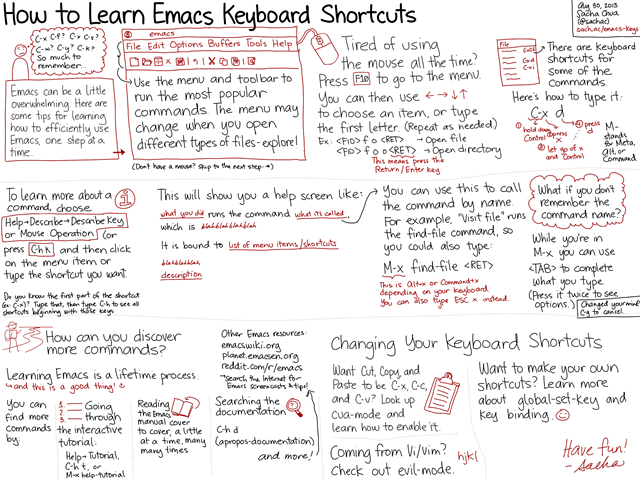 How to Learn Emacs Keyboard Shortcuts
Aug 30, 2013
Sacha Chua
(@sachac)
sach.ac/emacs-keys
C-x C-f? C-x C-s?
C-w? C-y? C-k?
So much to
remember...
Emacs can be a little
overwhelming. Here are
some tips for learning
how to efficiently use
Emacs, one step at a
time.
emacs
File Edit Options Buffers Tools Help
Use the menu and toolbar to
run the most popular
commands. The menu may
change when you open
different types of files-explore!
(Don't have a mouse? Skip to the next step →)
Tired of using
the mouse all the time?
Press F10 to go to the menu.
You can then use ← → ↓ ↑
to choose an item, or type
the first letter. (Repeat as needed)
Ex: <F10> f o <RET> → Open file
<F10> f o o <RET> → Open directory
This means press the
Return/Enter key
File
There are keyboard
shortcuts for
some of the
commands.
Here's how to type it:
C-x d
① hold down
Control
② press
x
② let go of x
and Control
④ press
d
M-
stands for
Meta,
Alt, or
Command.
To learn more about a
command, choose
Help→Describe→Describe Key
or Mouse Operation (or
press C-h k and then click
on the menu item or
type the shortcut you want.
Do you know the first part of the shortcut
(ex: C-x)? Type that, then type C-h to see all
shortcuts beginning with those keys
This will show you a help screen like:
what you did runs the command what its called,
which is blahblahblahblah
It is bound to list of menu items/shortcuts
blahblahblahblah
description
You can use this to call
the command by name.
For example, "Visit file" runs
the find-file command, so
you could also type:
M-x find-file <RET>
This is Alt+x or Command+x
depending on your keyboard.
You can also type ESC x instead.
What if you don't
remember the
command name?
While you're in
M-x you can use
<TAB> to complete
what you type.
(Press it twice to see
options.)
Changed your mind?
C-g to cancel.
How can you discover
more commands?
Learning Emacs is a lifetime process.
and this is a good thing!
You can
find more
commands
by:
1
2
3
Going
through
the interactive
tutorial:
Help→Tutorial,
C-h t, or
M-x help-tutorial
Reading
the Emacs
manual cover
to cover, a little
at a time, many
many times
Other Emacs resources:
emacswiki.org
planet.emacsen.org
reddit.com/r/emacs
Search the Internet for
Emacs screencasts & tips!
Searching the
documentation
C-h d
(apropos-documentation)
and more!
Changing Your Keyboard Shortcuts
Want Cut, Copy, and
Paste to be C-x, C-c,
and C-v? Look up
cua-mode and
learn how to enable it.
Coming from Vi/vim?
Check out evil-mode.
hjkl
Want to make your own
shortcuts? Learn more
about global-set-key and
key binding.
Have fun!
- Sacha